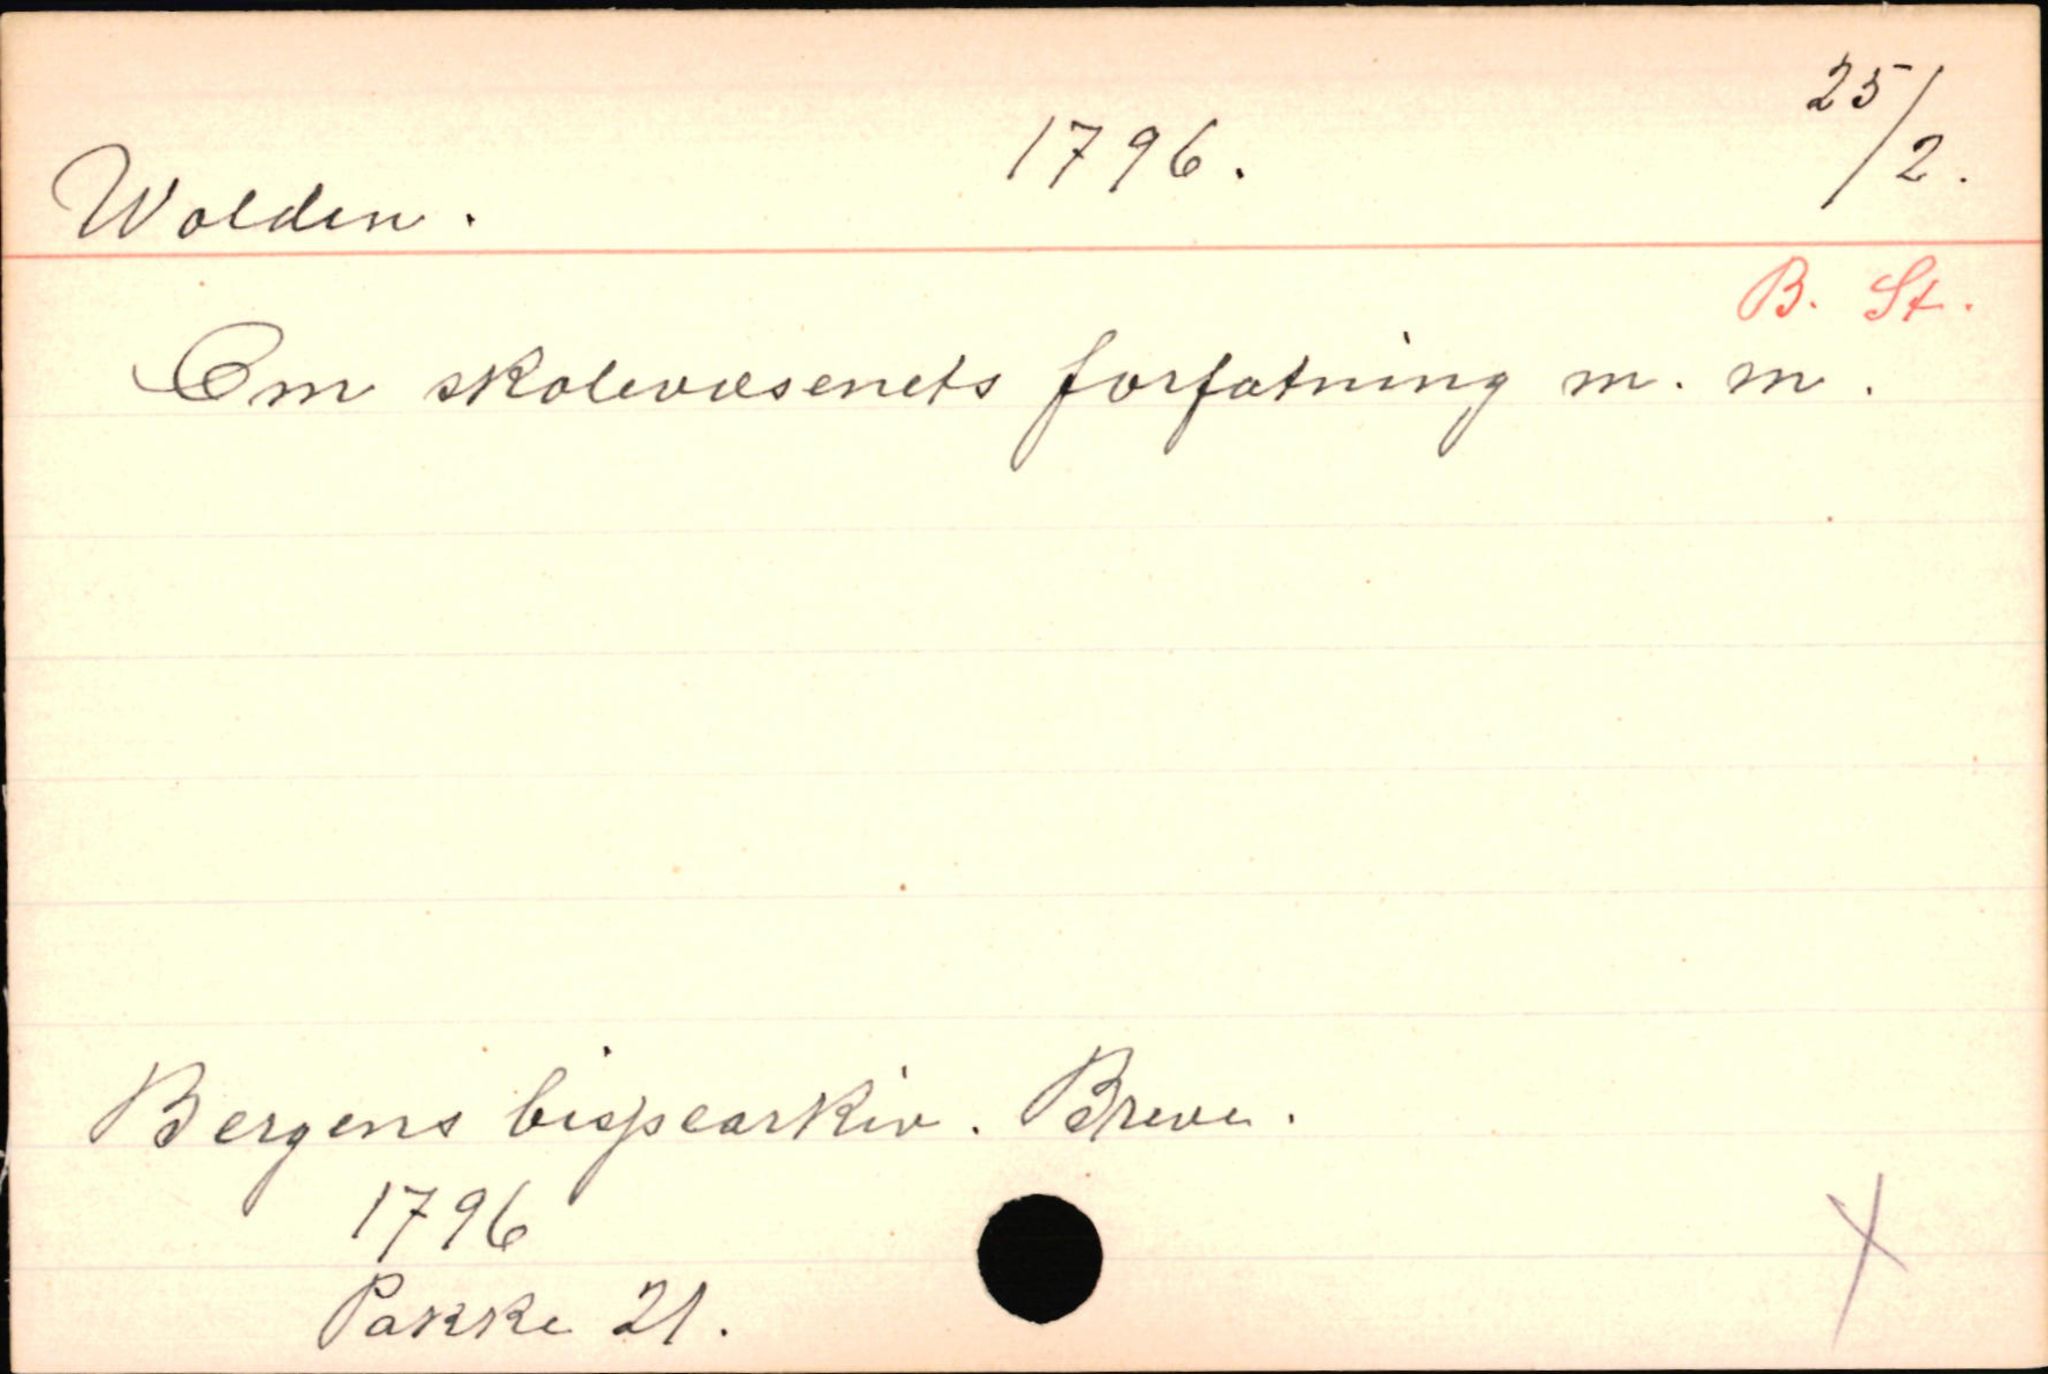 Wolden. 1796. 25/2.
B. St.
Om skolevæsenets forfatning m. m.
Bergens bispearkiv. Breve.
1796
Pakke 21.